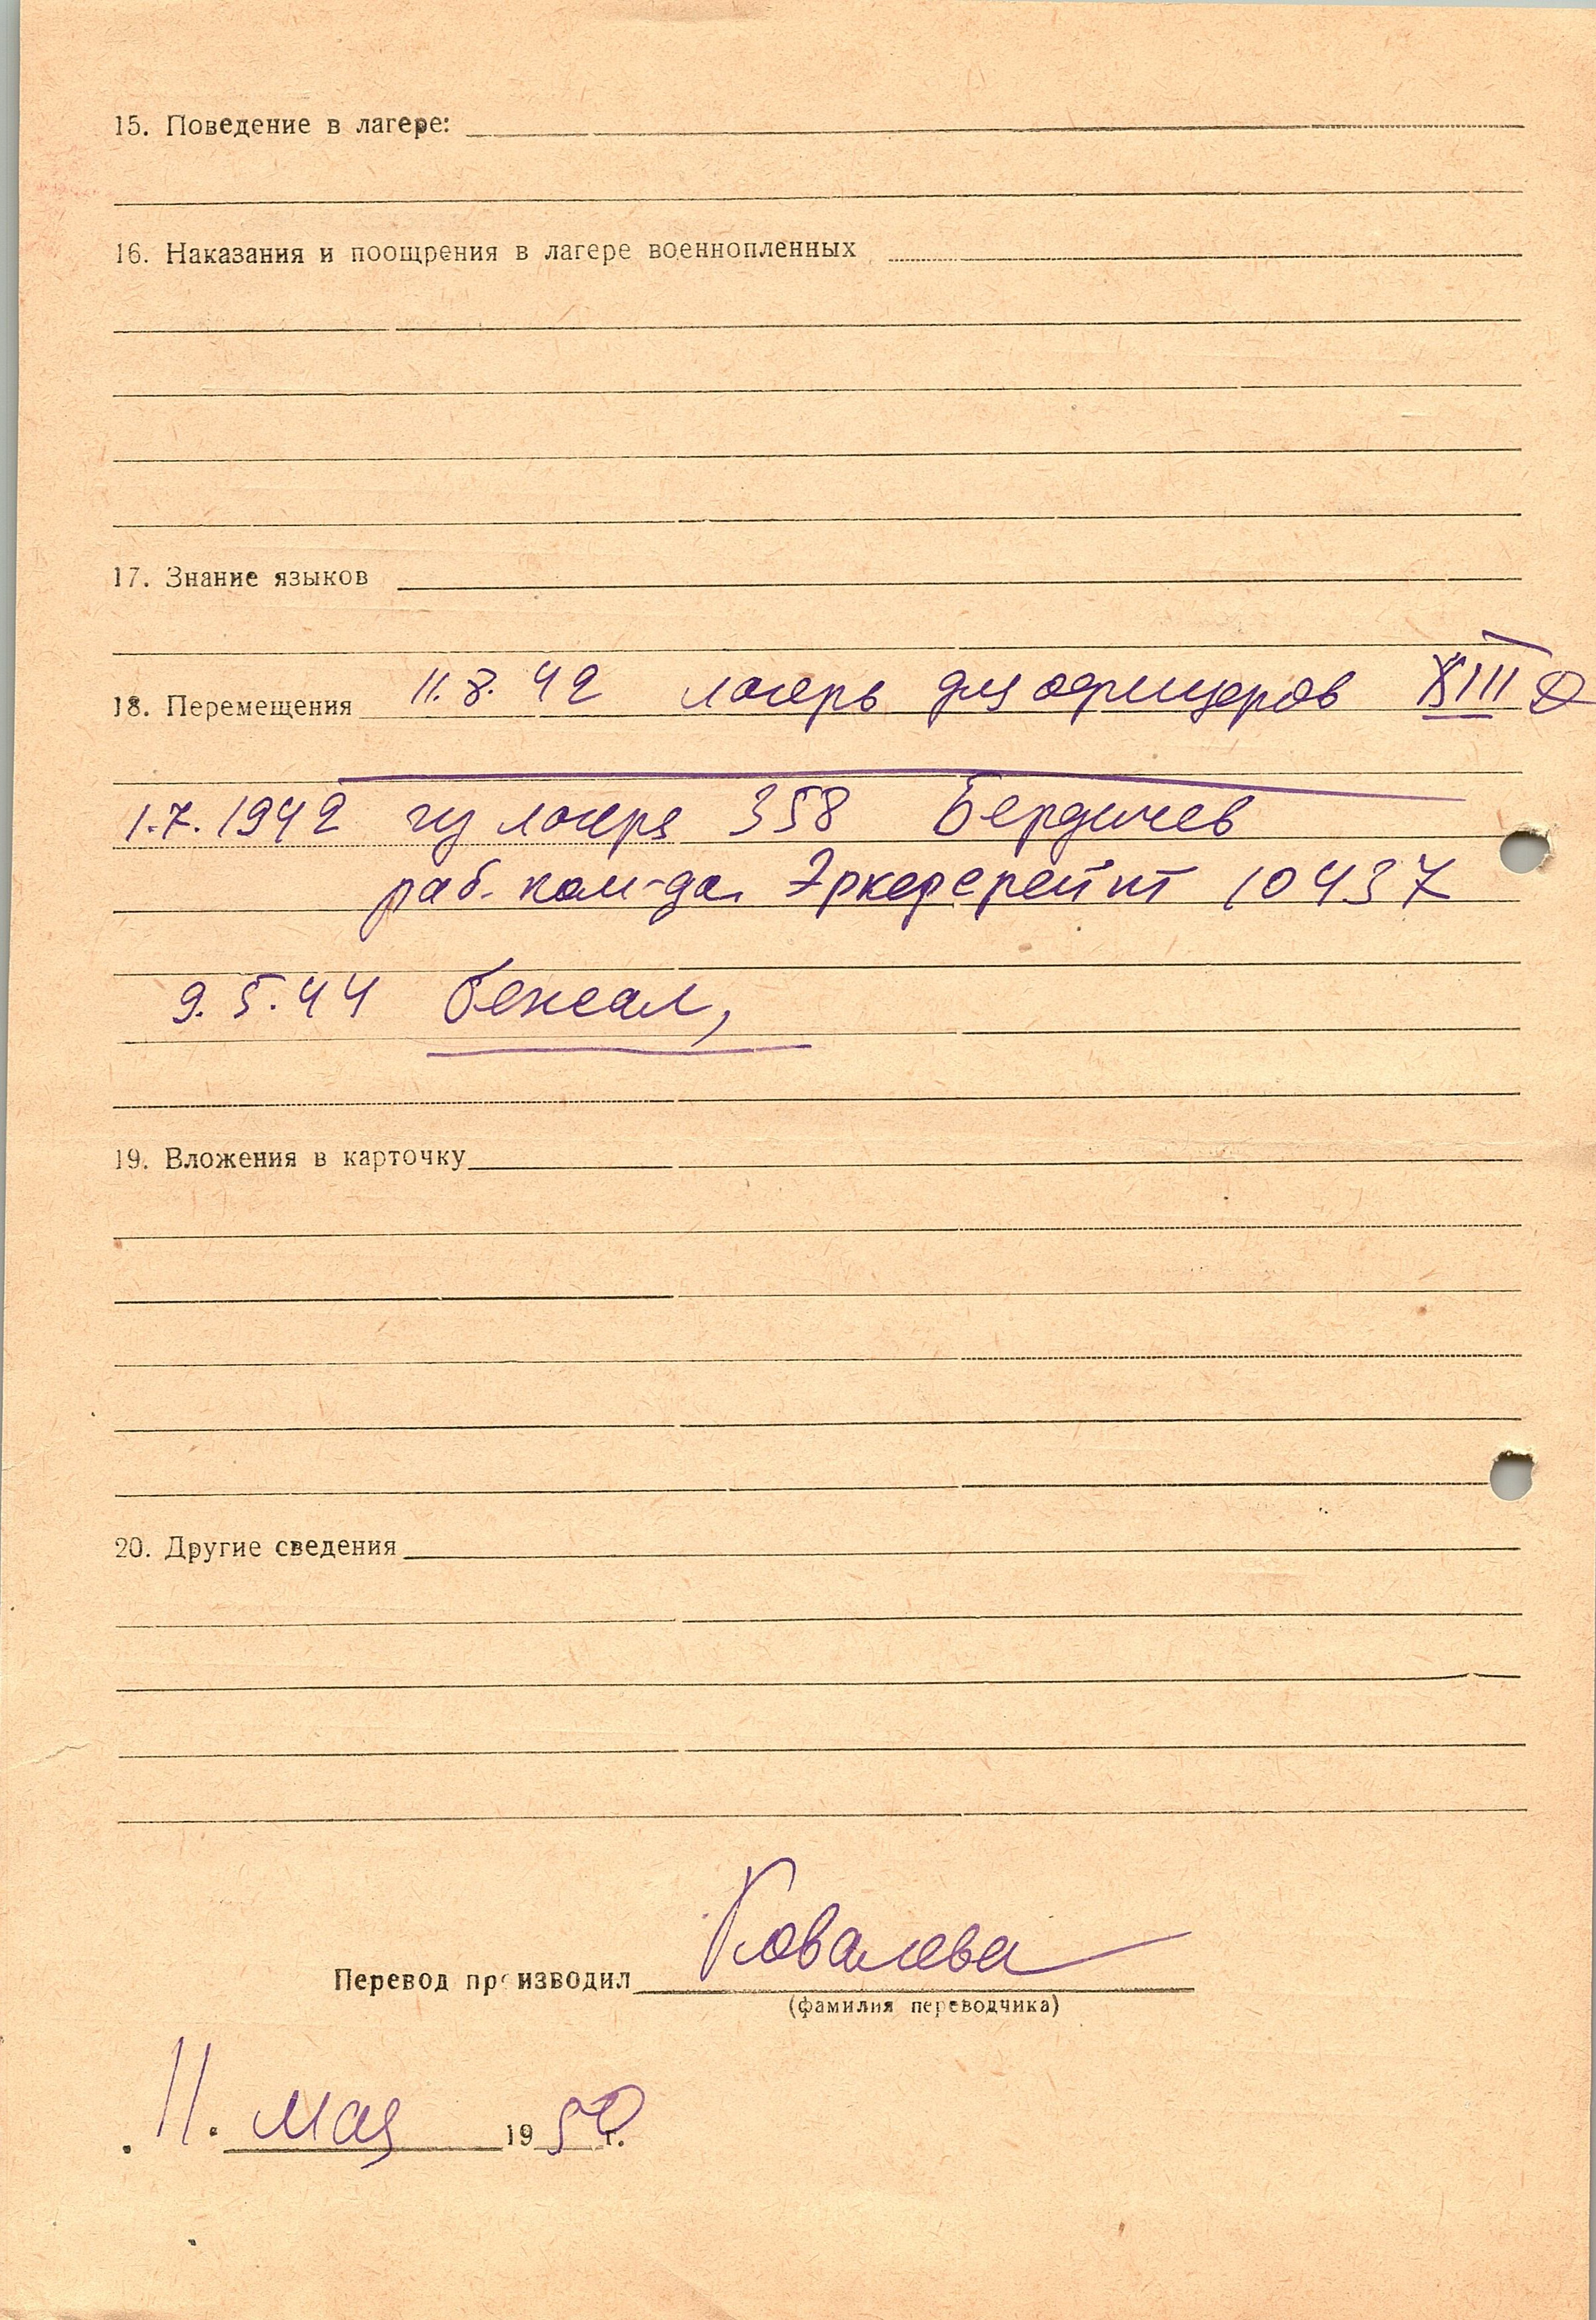 15. Поведение в лагере:
16. Наказания и поощрения в лагере военнопленных
17. Знание языков
18. Перемещения 11.8.42 лагерь для офицеров XIII D
1.7.1942 из лагеря 358 Бердичев
раб. ком-да Эркеререйт 10437
9.5.44 бежал,
19. Вложения в карточку
20. Другие сведения
Перевод производил Ковалева
(фамилия переводчика)
11. мая 1950 г.